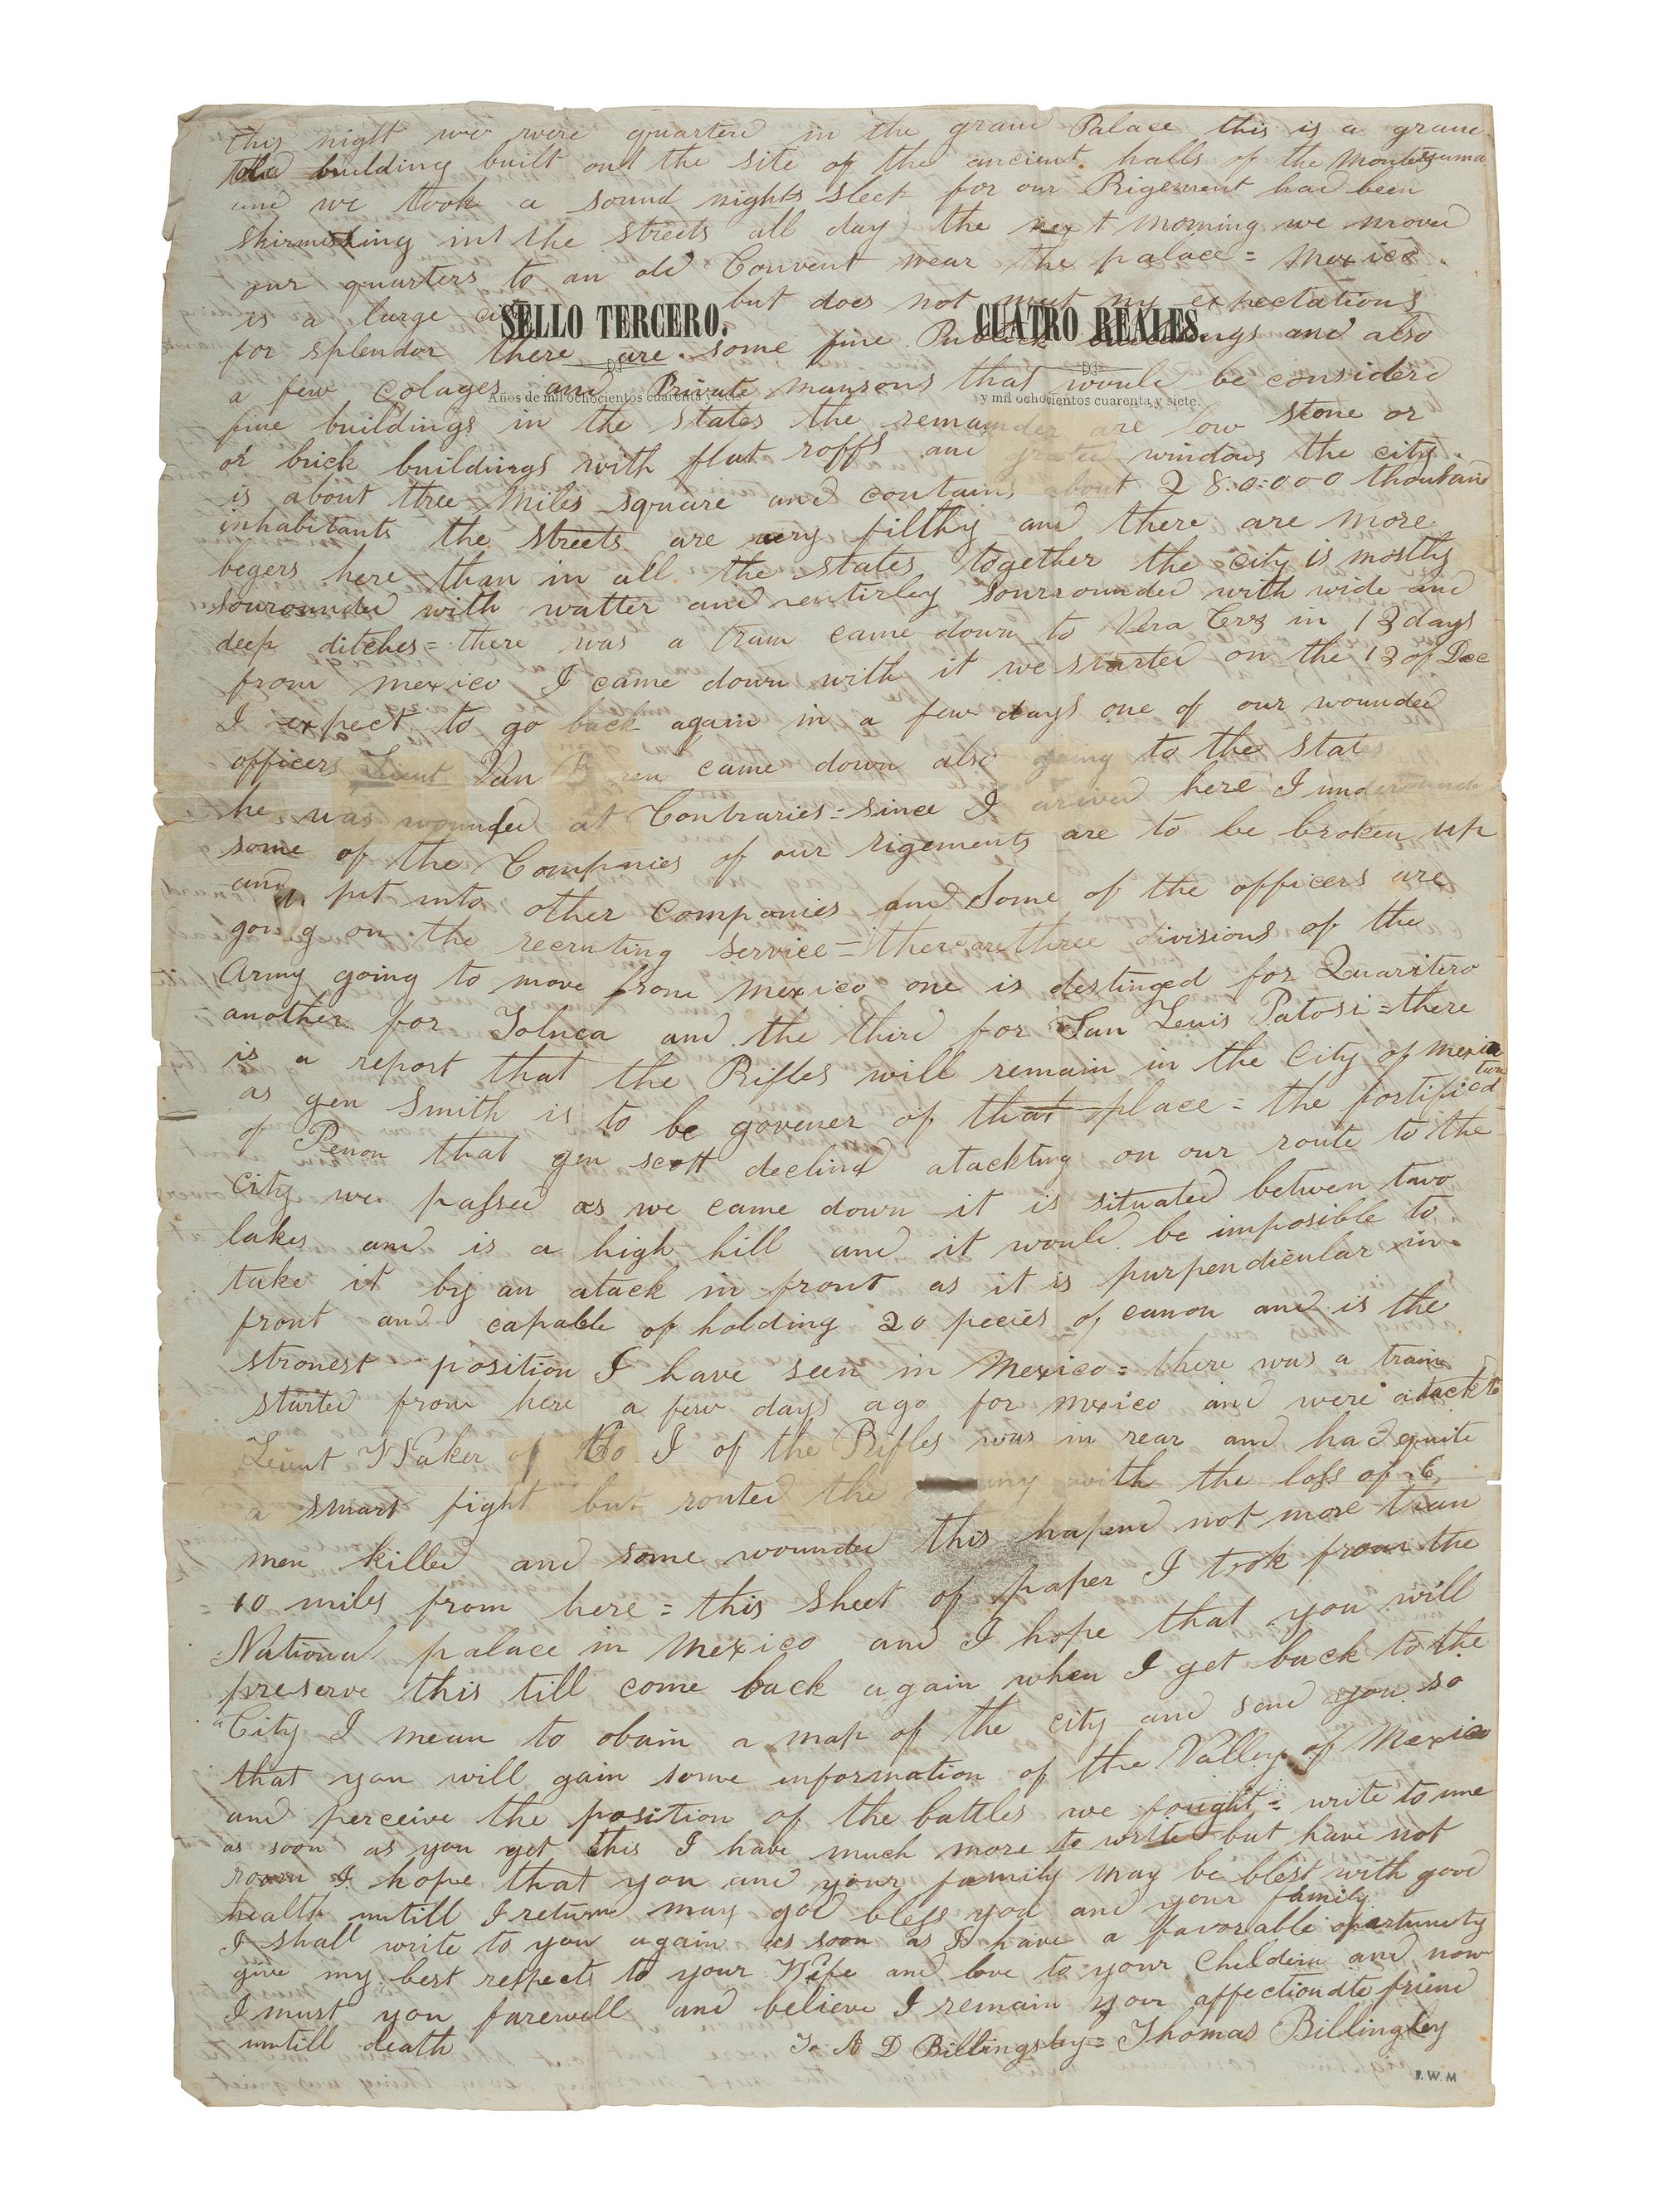 this night we were quarterd in the grand Palace this is a grand
old building built ont the site of the ancient halls of the Montezuma
and we took a sound nights sleep for our Rigement had been
skirmishing int the streets all day the next morning we moved
our quarters to an old Convent near the palace = Mexico
is a large city but does not meet my expectations
SELLO TERCERO. CUATRO REALES.
for splendor there are some fine Publick buildings and also
a few colages and Private mansons that would be considerd
Años de mil ochocientos cuarenta y seis y mil ochocientos cuarenta y siete.
fine buildings in the states the remainder are low stone or
or brick buildings with flat roffs and grated windows the city
is about three miles square and contains about 280.000 thousand
inhabitants the streets are very filthy and there are more
begers here than in all the states together the city is mostly
sourounded with watter and entirley sourrounded with wide and
deep ditches = there was a train came down to Vera Cruz in 13 days
from mexico I came down with it we started on the 13 of Dec
I expect to go back again in a few days one of our wounded
officers Lieut Van came down also going to the States
he was wounded at Contraries = since I arived here I understande
some of the Companies of our rigements are to be broken up
and put into other companies and some of the officers are
going on the recruting service = there are three divisions of the
Army going to move from mexico one is destinged for Quaritero
another for Toluca and the third for San Leuis Patosi = there
is a report that the Rifles will remain in the City of mexico
as gen Smith is to be govener of that place = the fortified town
of Penon that gen scott declind atackting on our route to the
city we passed as we came down it is situated betwen two
lakes and is a high hill and it would be imposible to
take it by an atack in front as it is purpendicular in
front and capable of holding 20 pecies of canon and is the
stronest position I have seen in Mexico = there was a train
started from here a few days ago for mexico and were atackt
Lieut Waker of Co I of the Rifles was in rear and had quite
a smart fight but routed the with the loss of 6
men killed and some wounded this hapend not more than
10 miles from here = this sheet of paper I took from the
National palace in Mexico and I hope that you will
preserve this till come back again when I get back to the
City I mean to obain a map of the city and send you so
that you will gain some information of the Valley of Mexico
and perceive the position of the battles we fought = write to me
as soon as you get this I have much more to write but have not
room I hope that you and your family may be blest with good
health untill I return may god bless you and your family
I shall write to you again as soon as I have a favorable opartunety
give my best respects to your Wife and love to your Childern and now
I must you farewell and believe I remain your affectiondte friend
untill death To A D Billingsley = Thomas Billingley
F. W. M